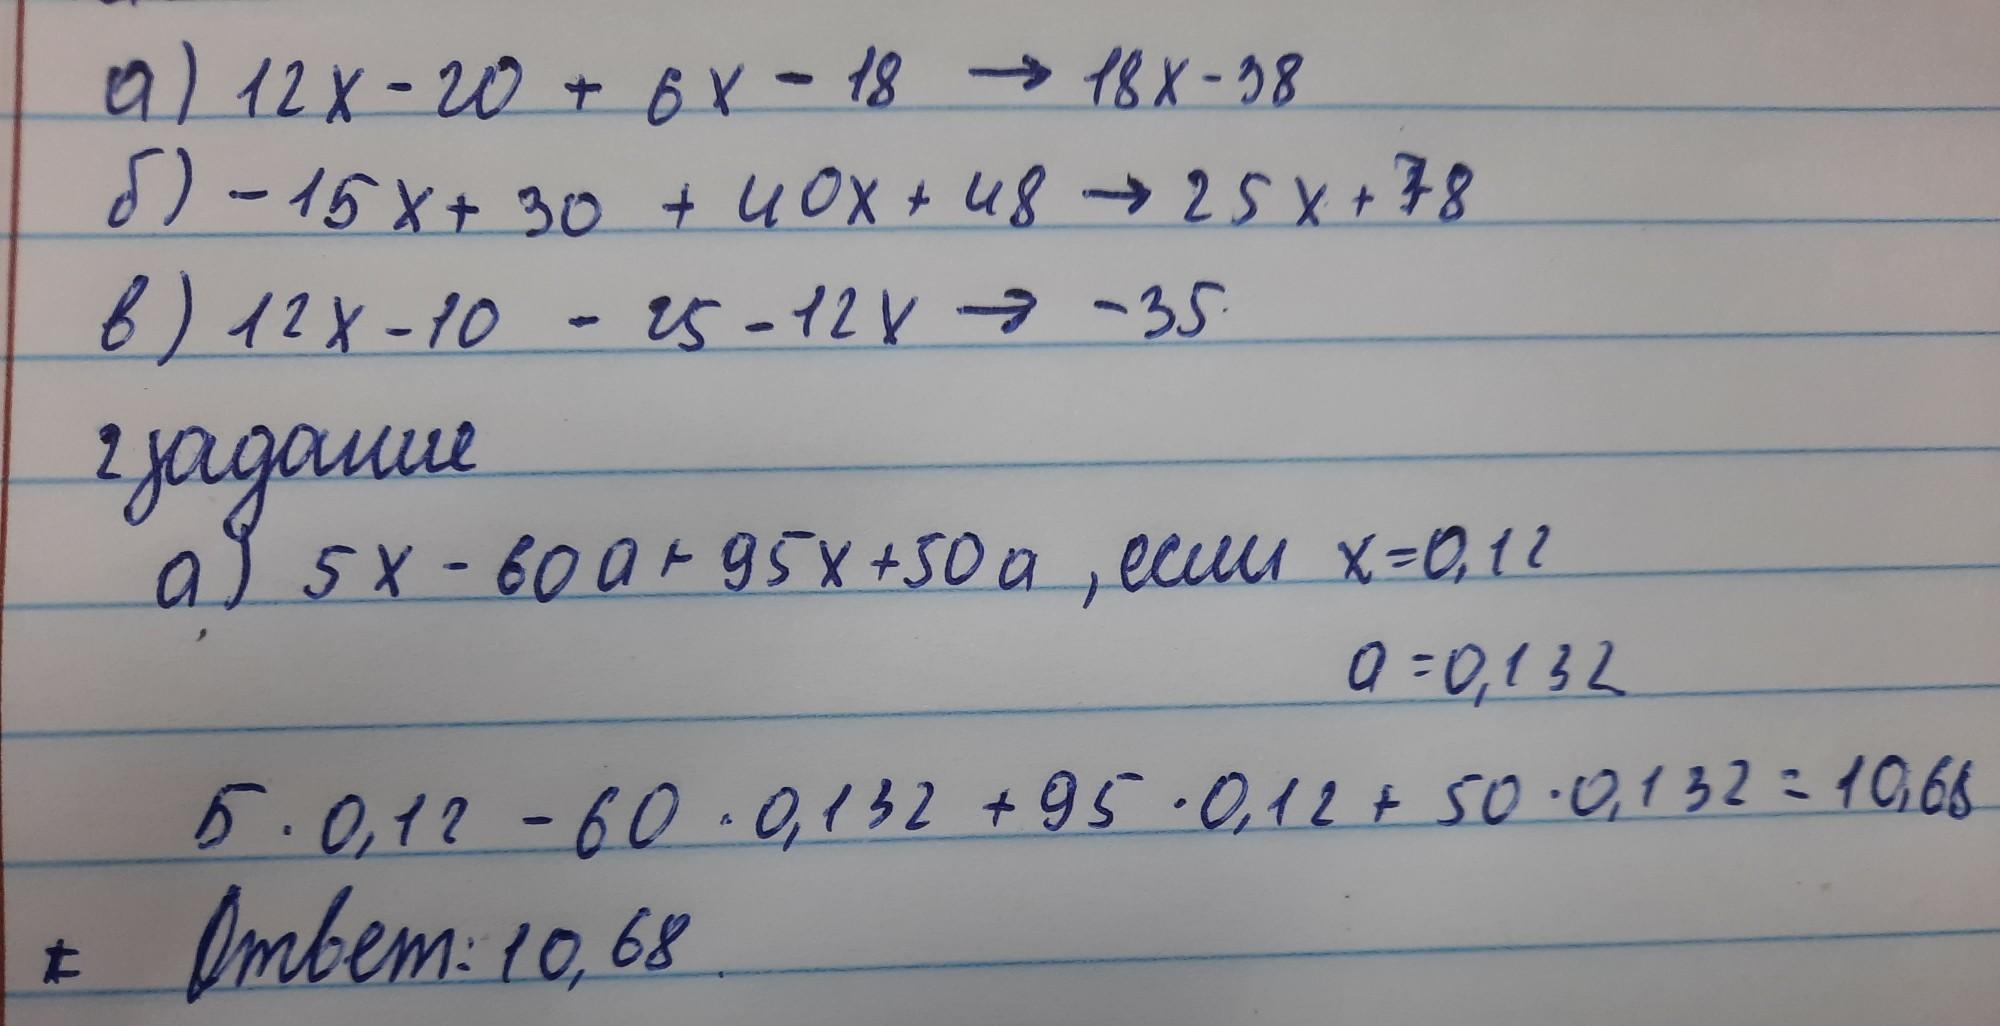 а) 12x - 20 + 6x - 18 → 18x - 38
б) - 15x + 30 + 40x + 48 → 25x + 78
в) 12x - 10 - 25 - 12x → - 35
2 задание
а) 5x - 60a + 95x + 50a , если x = 0,12
a = 0,132
5 · 0,12 - 60 · 0,132 + 95 · 0,12 + 50 · 0,132 = 10,68
Ответ: 10,68